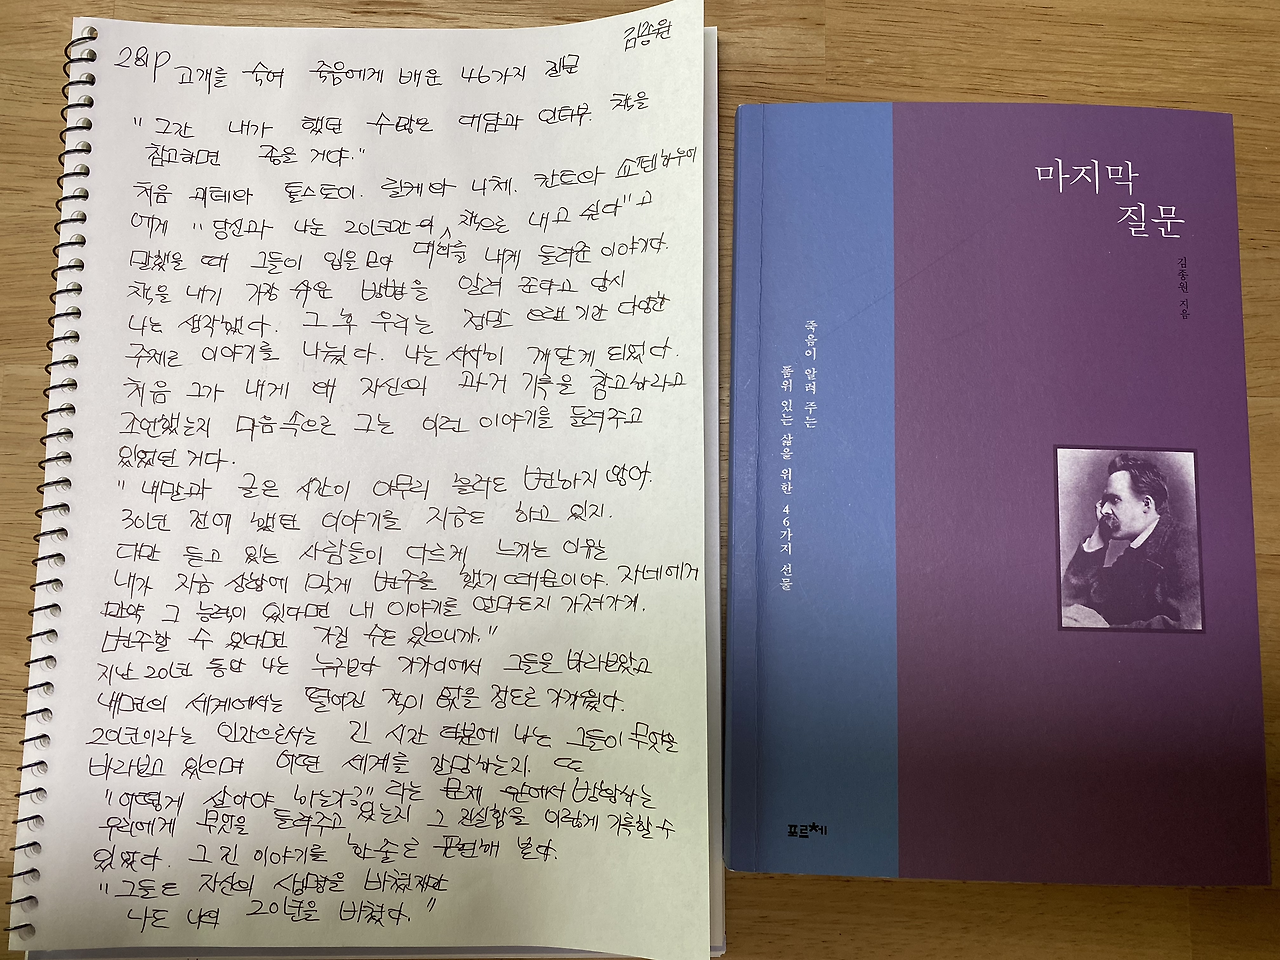 김종원
281p 고개를 숙여 죽음에게 배운 46가지 질문
"그간 내가 했던 수많은 대담과 인터뷰. 책을
참고하면 좋을 거야."
처음 괴테와 톨스토이. 릴케와 니체. 칸트와 쇼펜하우어
에게 "당신과 나눈 20년간의 책으로 내고 싶다"고
대화를
말했을 때 그들이 입을 모아 내게 들려준 이야기다.
책을 내기 가장 쉬운 방법을 알려 준다고 당시
나는 생각했다. 그 후 우리는 정말 오랜 기간 다양한
주제로 이야기를 나눴다. 나는 서서히 깨닫게 되었다.
처음 그가 내게 왜 자신의 과거 기록을 참고하라고
조언했는지 마음속으로 그는 이런 이야기를 들려주고
있었던 거다.
"내말과 글은 시간이 아무리 흘러도 변하지 않아.
30년 전에 했던 이야기를 지금도 하고 있지.
다만 듣고 있는 사람들이 다르게 느끼는 이유는
내가 지금 상황에 맞게 변주를 했기 때문이야. 자네에게
만약 그 능력이 있다면 내 이야기를 얼마든지 가져가게.
변주할 수 있다면 가질 수도 있으니까."
지난 20년 동안 나는 누구보다 가까이에서 그들을 바라보았고
내면의 세계에서는 떨어진 적이 없을 정도로 가까웠다.
20년이라는 인간으로서는 긴 시간 덕분에 나는 그들이 무엇을
바라보고 있으며 어떤 세계를 갈망하는지. 또
"어떻게 살아야 하는가?"라는 문제 앞에서 방황하는
우리에게 무엇을 들려주고 있는지 그 진실함을 이렇게 기록할 수
있었다. 그 긴 이야기를 한 줄로 표현해 본다.
"그들은 자신의 생명을 바쳤지만
나도 나의 20년을 바쳤다."
마지막
질문
김종원 지음
죽음이 알려 주는
품위 있는 삶을 위한 46가지 선물
포르체